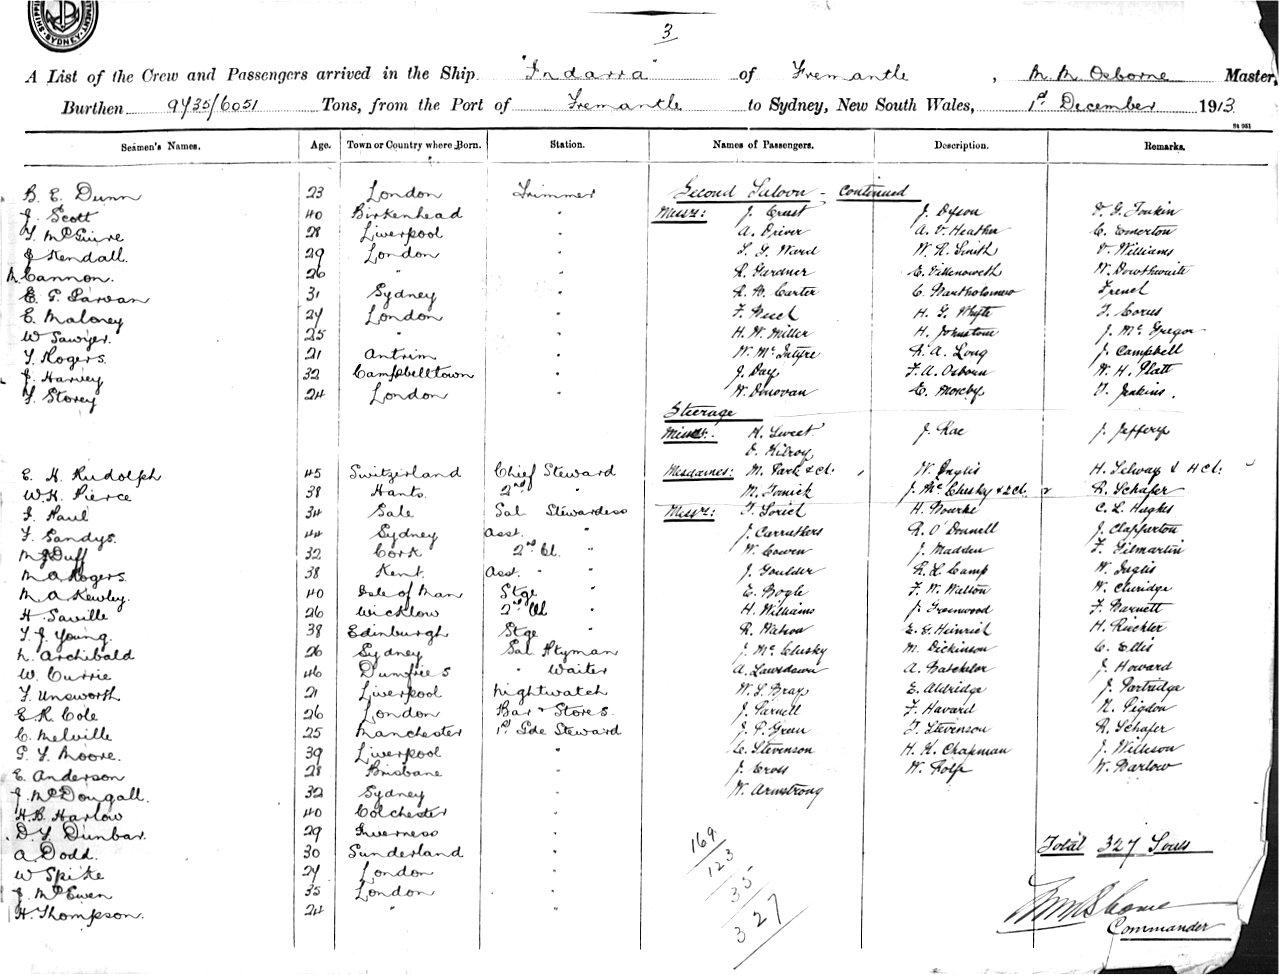 SYDNEY
3
A List of the Crew and Passengers arrived in the Ship "Indarra" of Fremantle, M M Osborne Master,
Burthen 9735/6051 Tons, from the Port of Fremantle to Sydney, New South Wales, 1st December 1913
St 961
Seamen's Names. Age. Town or Country where Born. Station. Names of Passengers. Description. Remarks.
B. E. Dunn 23 London Trimmer Second Saloon - Continued
J. Scott 40 Birkenhead " Messrs: J. Crust J. Dyson V. G. Tonkin
T. McGuire 28 Liverpool " A. Driver A. V. Heather C. Emerton
J Kendall. 29 London " L. G. Ward W. R. Smith V. Williams
M. Cannon. 26 " " R. Gardner W. Dowthwaite
E. G. 31 Sydney " R. W. Carter C. Bartholomew French
E. Maloney 27 London " F. H. G. Whyte
W Sawyer. 25 " " H. W. Miller H. Johnstone J. McGregor
T. Rogers. 21 Antrim " W. McIntyre R. A. Long J. Campbell
J. Harvey 32 Campbelltown " J. Day F. A. Osborn W. H. Platt
T. Storey 24 London " W. Donovan E. Moxeby D. Jenkins.
Steerage
Misses: H. Sweet J. Rae J. Jeffery
V. Kilroy
E. H. Rudolph 45 Switzerland Chief Steward Mesdames: M. Park & Cl. W. Inglis H. Selway & 4 Cl.
W. H. Pierce 38 Hants. 2nd " M. J. McClusky & 2 Cl. R. Schafer
J. Paul 34 Sale Sal Stewardess Messrs: H. Rourke C. L. Hughes
F. Sandys. 44 Sydney Asst. " J. Carruthers R. O'Donnell J. Clapperton
M J Duff 32 Cork 2nd Cl. " W. Cowen J. Madden F. Gilmartin
M A Rogers. 38 Kent. Asst. " " J. Goulder R. L. Camp W. Inglis
M A Kewley. 40 Isle of Man Stge " E. Bogle F. W. Watson W. Claridge
H. Saville 26 Wicklow 2nd Cl " H. Williams J. Greenwood F. Barnett
T. J. Young. 38 Edinburgh Stge " R. Watson E. G. Heinrich H. Rickter
L. Archibald 26 Sydney Sal Ptyman J. McClusky M. Dickinson C. Ellis
W. Currie 46 Dumfries " Waiter A. Lansdown A. Batchelor J. Howard
T. Unsworth 21 Liverpool Nightwatch W. S. Bray E. Aldridge J. Partridge
E R. Cole 26 London Bar & Stores. J. Parnell F. Havard N. Pigdon
C. Melville 25 Manchester 1st Gde Steward J. P. Green T. Stevenson R. Schafer
G. T. Moore. 39 Liverpool " C. Stevenson H. K. Chapman J. Willison
E. Anderson 28 Brisbane " J. Cross W. Rolfe W. Barlow
J. McDougall. 32 Sydney " W. Armstrong
H. B. Harlow 40 Colchester "
D. T. Dunbar. 29 Inverness "
A Dodd. 30 Sunderland " Total 327 Souls
W Spike 27 London "
J. McEwen 35 London "
H. Thompson. 24 " "
169
123
35
327
M M Osborne
Commander